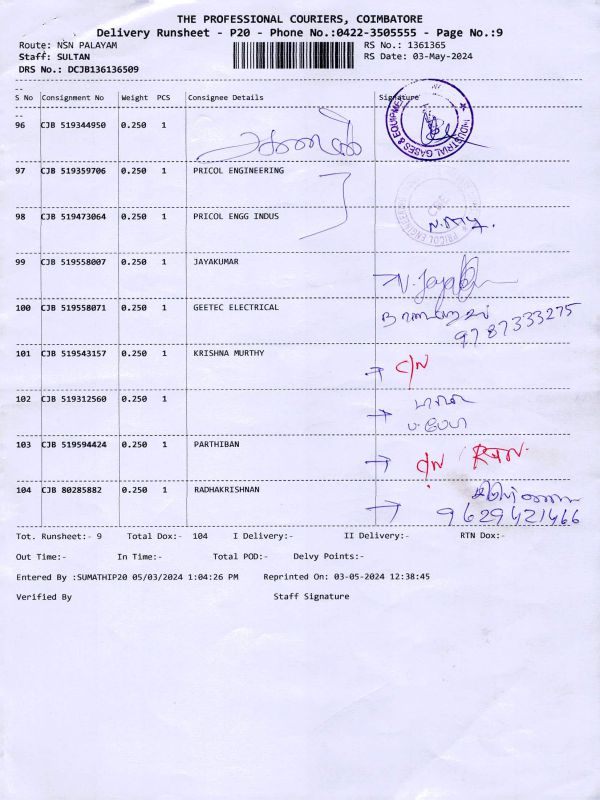 THE PROFESSIONAL COURIERS, COIMBATORE
Delivery Runsheet - P20 - Phone No.:0422-3505555 - Page No.:9
Route: NSN PALAYAM RS No.: 1361365
Staff: SULTAN RS Date: 03-May-2024
DRS No.: DCJB136136509
--
S No Consignment No Weight PCS Consignee Details Signature
--
96 CJB 519344950 0.250 1
INDUSTRIAL GASES & EQUIPMENT
97 CJB 519359706 0.250 1 PRICOL ENGINEERING
98 CJB 519473064 0.250 1 PRICOL ENGG INDUS
99 CJB 519558007 0.250 1 JAYAKUMAR
100 CJB 519558071 0.250 1 GEETEC ELECTRICAL
9787333275
101 CJB 519543157 0.250 1 KRISHNA MURTHY
C/N
102 CJB 519312560 0.250 1
103 CJB 519594424 0.250 1 PARTHIBAN
104 CJB 80285882 0.250 1 RADHAKRISHNAN
9629421466
Tot. Runsheet:- 9 Total Dox:- 104 I Delivery:- II Delivery:- RTN Dox:-
Out Time:- In Time:- Total POD:- Delvy Points:-
Entered By :SUMATHIP20 05/03/2024 1:04:26 PM Reprinted On: 03-05-2024 12:38:45
Verified By Staff Signature